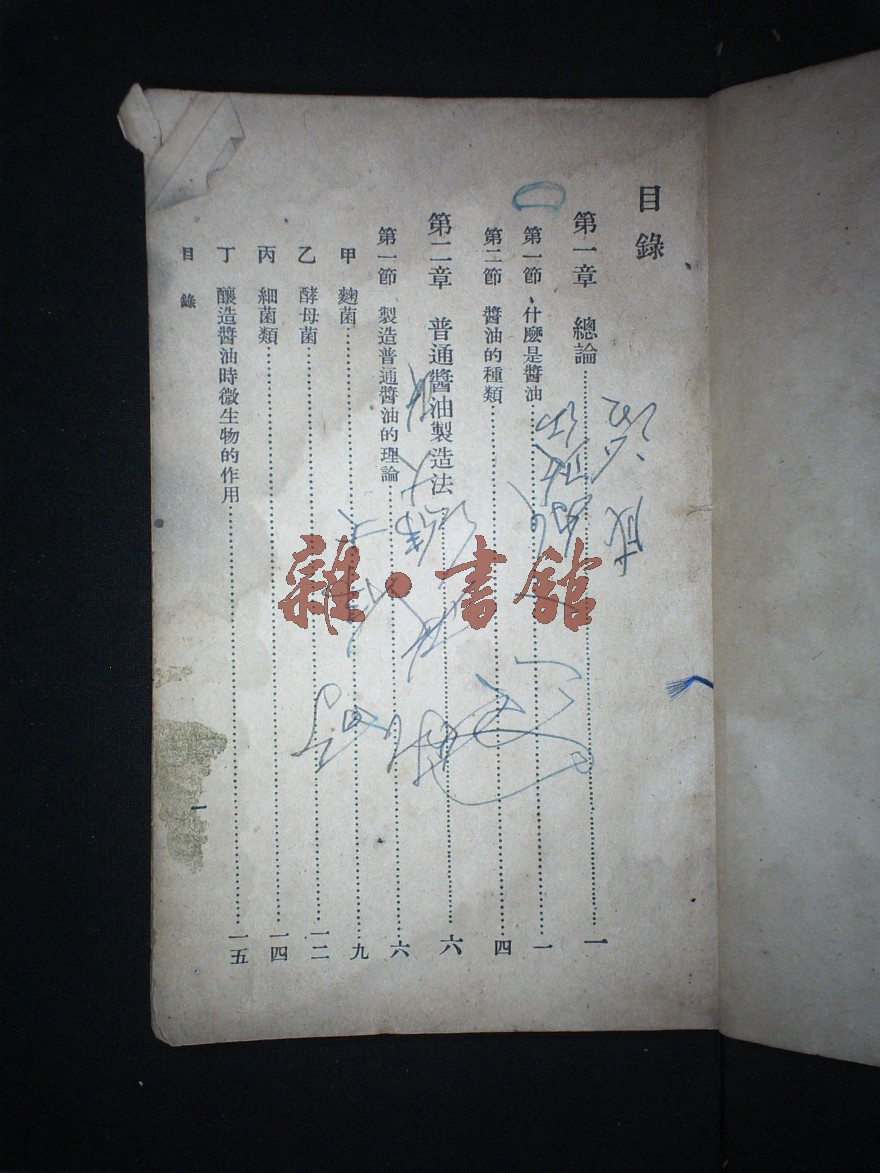 目錄
第一章 總論……一
第一節 什麼是醬油……一
第二節 醬油的種類……四
第二章 普通醬油製造法……六
第一節 製造普通醬油的理論……六
甲 麴菌……九
乙 酵母菌……一二
丙 細菌類……一四
丁 釀造醬油時微生物的作用……一五
目錄
一
雜·書館